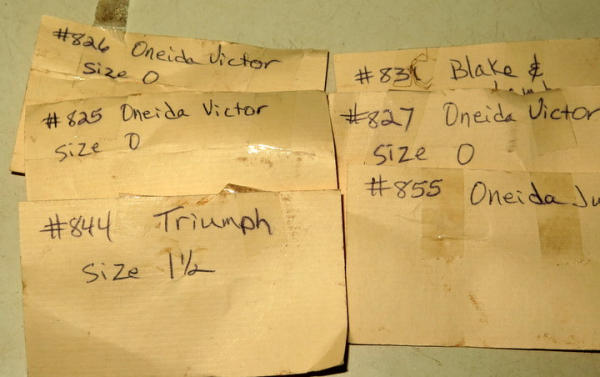 #826 Oneida Victor
Size 0
#825 Oneida Victor
Size 0
#844 Triumph
Size 1½
Blake &
#827 Oneida Victor
Size 0
#855 Oneida Ju